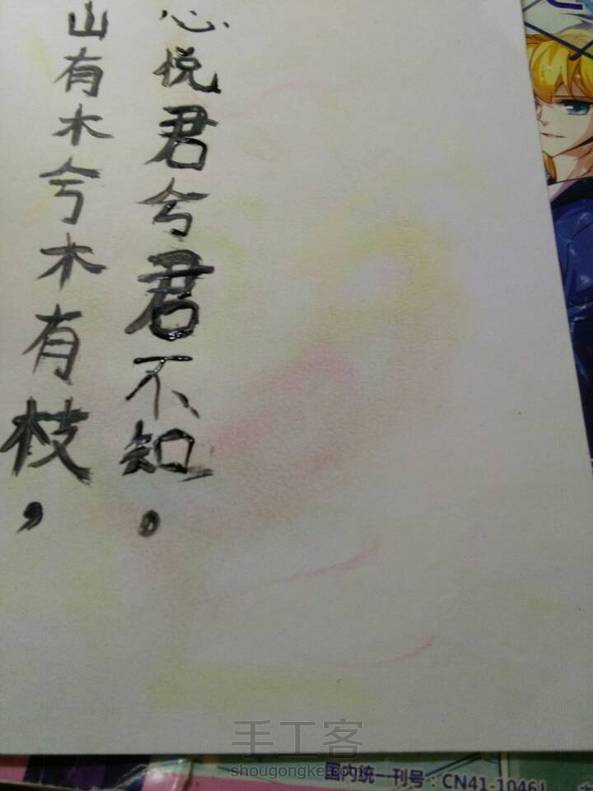 山有木兮木有枝，
心悦君兮君不知。
手工客
shougongke.com
国内统一刊号：CN41-1046/